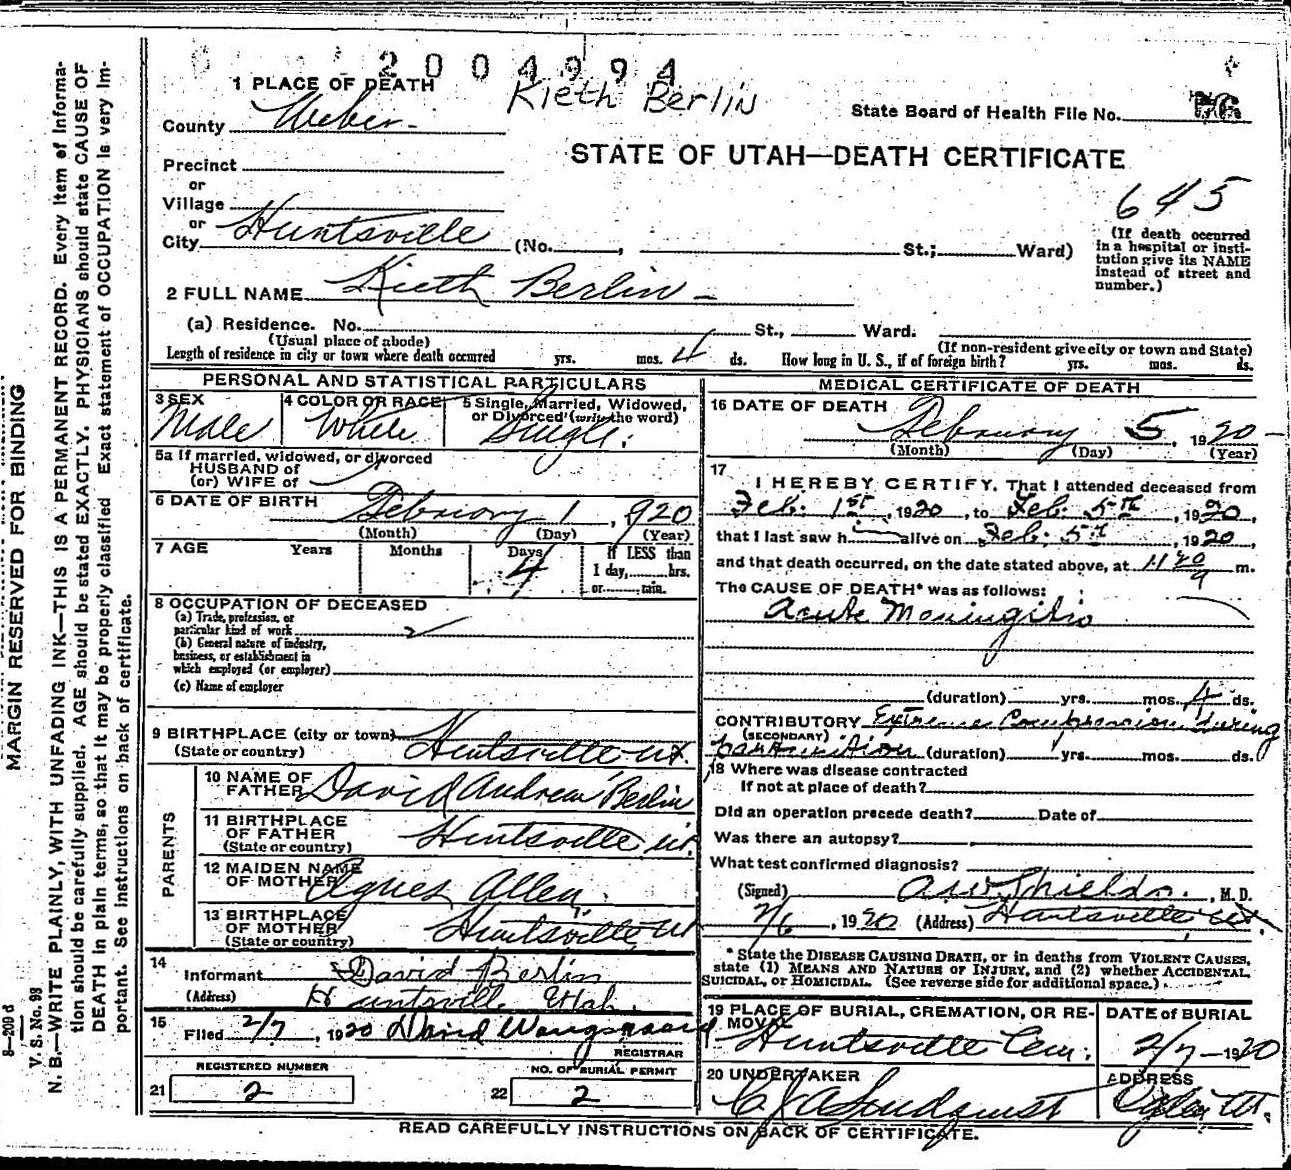 2004994
Kieth Berlin
1 PLACE OF DEATH
County Weber
State Board of Health File No. 76
STATE OF UTAH—DEATH CERTIFICATE
Precinct
or
Village
or
City Huntsville (No. , St.; Ward)
645
(If death occurred
in a hospital or insti-
tution give its NAME
instead of street and
number.)
2 FULL NAME Kieth Berlin
(a) Residence. No. St., Ward.
(Usual place of abode) (If non-resident give city or town and State)
Length of residence in city or town where death occurred yrs. mos. 4 ds. How long in U. S., if of foreign birth? yrs. mos. ds.
PERSONAL AND STATISTICAL PARTICULARS
3 SEX
Male
4 COLOR OR RACE
White
5 Single, Married, Widowed,
or Divorced (write the word)
Single.
5a If married, widowed, or divorced
HUSBAND of
(or) WIFE of
6 DATE OF BIRTH February 1, 1920
(Month) (Day) (Year)
7 AGE Years Months Days If LESS than
4 1 day, hrs.
or min.
8 OCCUPATION OF DECEASED
(a) Trade, profession, or
particular kind of work
(b) General nature of industry,
business, or establishment in
which employed (or employer)
(c) Name of employer
9 BIRTHPLACE (city or town) Huntsville Ut.
(State or country)
PARENTS
10 NAME OF
FATHER David Andrew Berlin
11 BIRTHPLACE
OF FATHER Huntsville Ut.
(State or country)
12 MAIDEN NAME
OF MOTHER Agnes Allen
13 BIRTHPLACE
OF MOTHER Huntsville Ut
(State or country)
14
Informant David Berlin
(Address) Huntsville Utah.
15
Filed 2/7, 1920 David Wangsgaard
REGISTRAR
REGISTERED NUMBER
21 2
NO. OF BURIAL PERMIT
22 2
MEDICAL CERTIFICATE OF DEATH
16 DATE OF DEATH
February 5, 1920
(Month) (Day) (Year)
17
I HEREBY CERTIFY, That I attended deceased from
Feb. 1st, 1920, to Feb. 5th, 1920,
that I last saw h alive on Feb. 5th, 1920,
and that death occurred, on the date stated above, at m.
The CAUSE OF DEATH* was as follows:
Acute Meningitis
(duration) yrs. mos. 4 ds.
CONTRIBUTORY Extreme Compression during
(SECONDARY)
parturition (duration) yrs. mos. ds.
18 Where was disease contracted
If not at place of death?
Did an operation precede death? Date of
Was there an autopsy?
What test confirmed diagnosis?
(Signed) A W Shields, M. D.
2/6, 1920 (Address) Huntsville Ut.
*State the DISEASE CAUSING DEATH, or in deaths from VIOLENT CAUSES,
state (1) MEANS AND NATURE OF INJURY, and (2) whether ACCIDENTAL,
SUICIDAL, or HOMICIDAL. (See reverse side for additional space.)
19 PLACE OF BURIAL, CREMATION, OR RE-
MOVAL
Huntsville Cem.
DATE of BURIAL
2/7-1920
20 UNDERTAKER
ADDRESS
Ogden Ut.
READ CAREFULLY INSTRUCTIONS ON BACK OF CERTIFICATE.
MARGIN RESERVED FOR BINDING
N. B.—WRITE PLAINLY, WITH UNFADING INK—THIS IS A PERMANENT RECORD. Every Item of Informa-
tion should be carefully supplied. AGE should be stated EXACTLY. PHYSICIANS should state CAUSE OF
DEATH in plain terms, so that it may be properly classified Exact statement of OCCUPATION is very Im-
portant. See Instructions on back of certificate.
V. S. No. 98